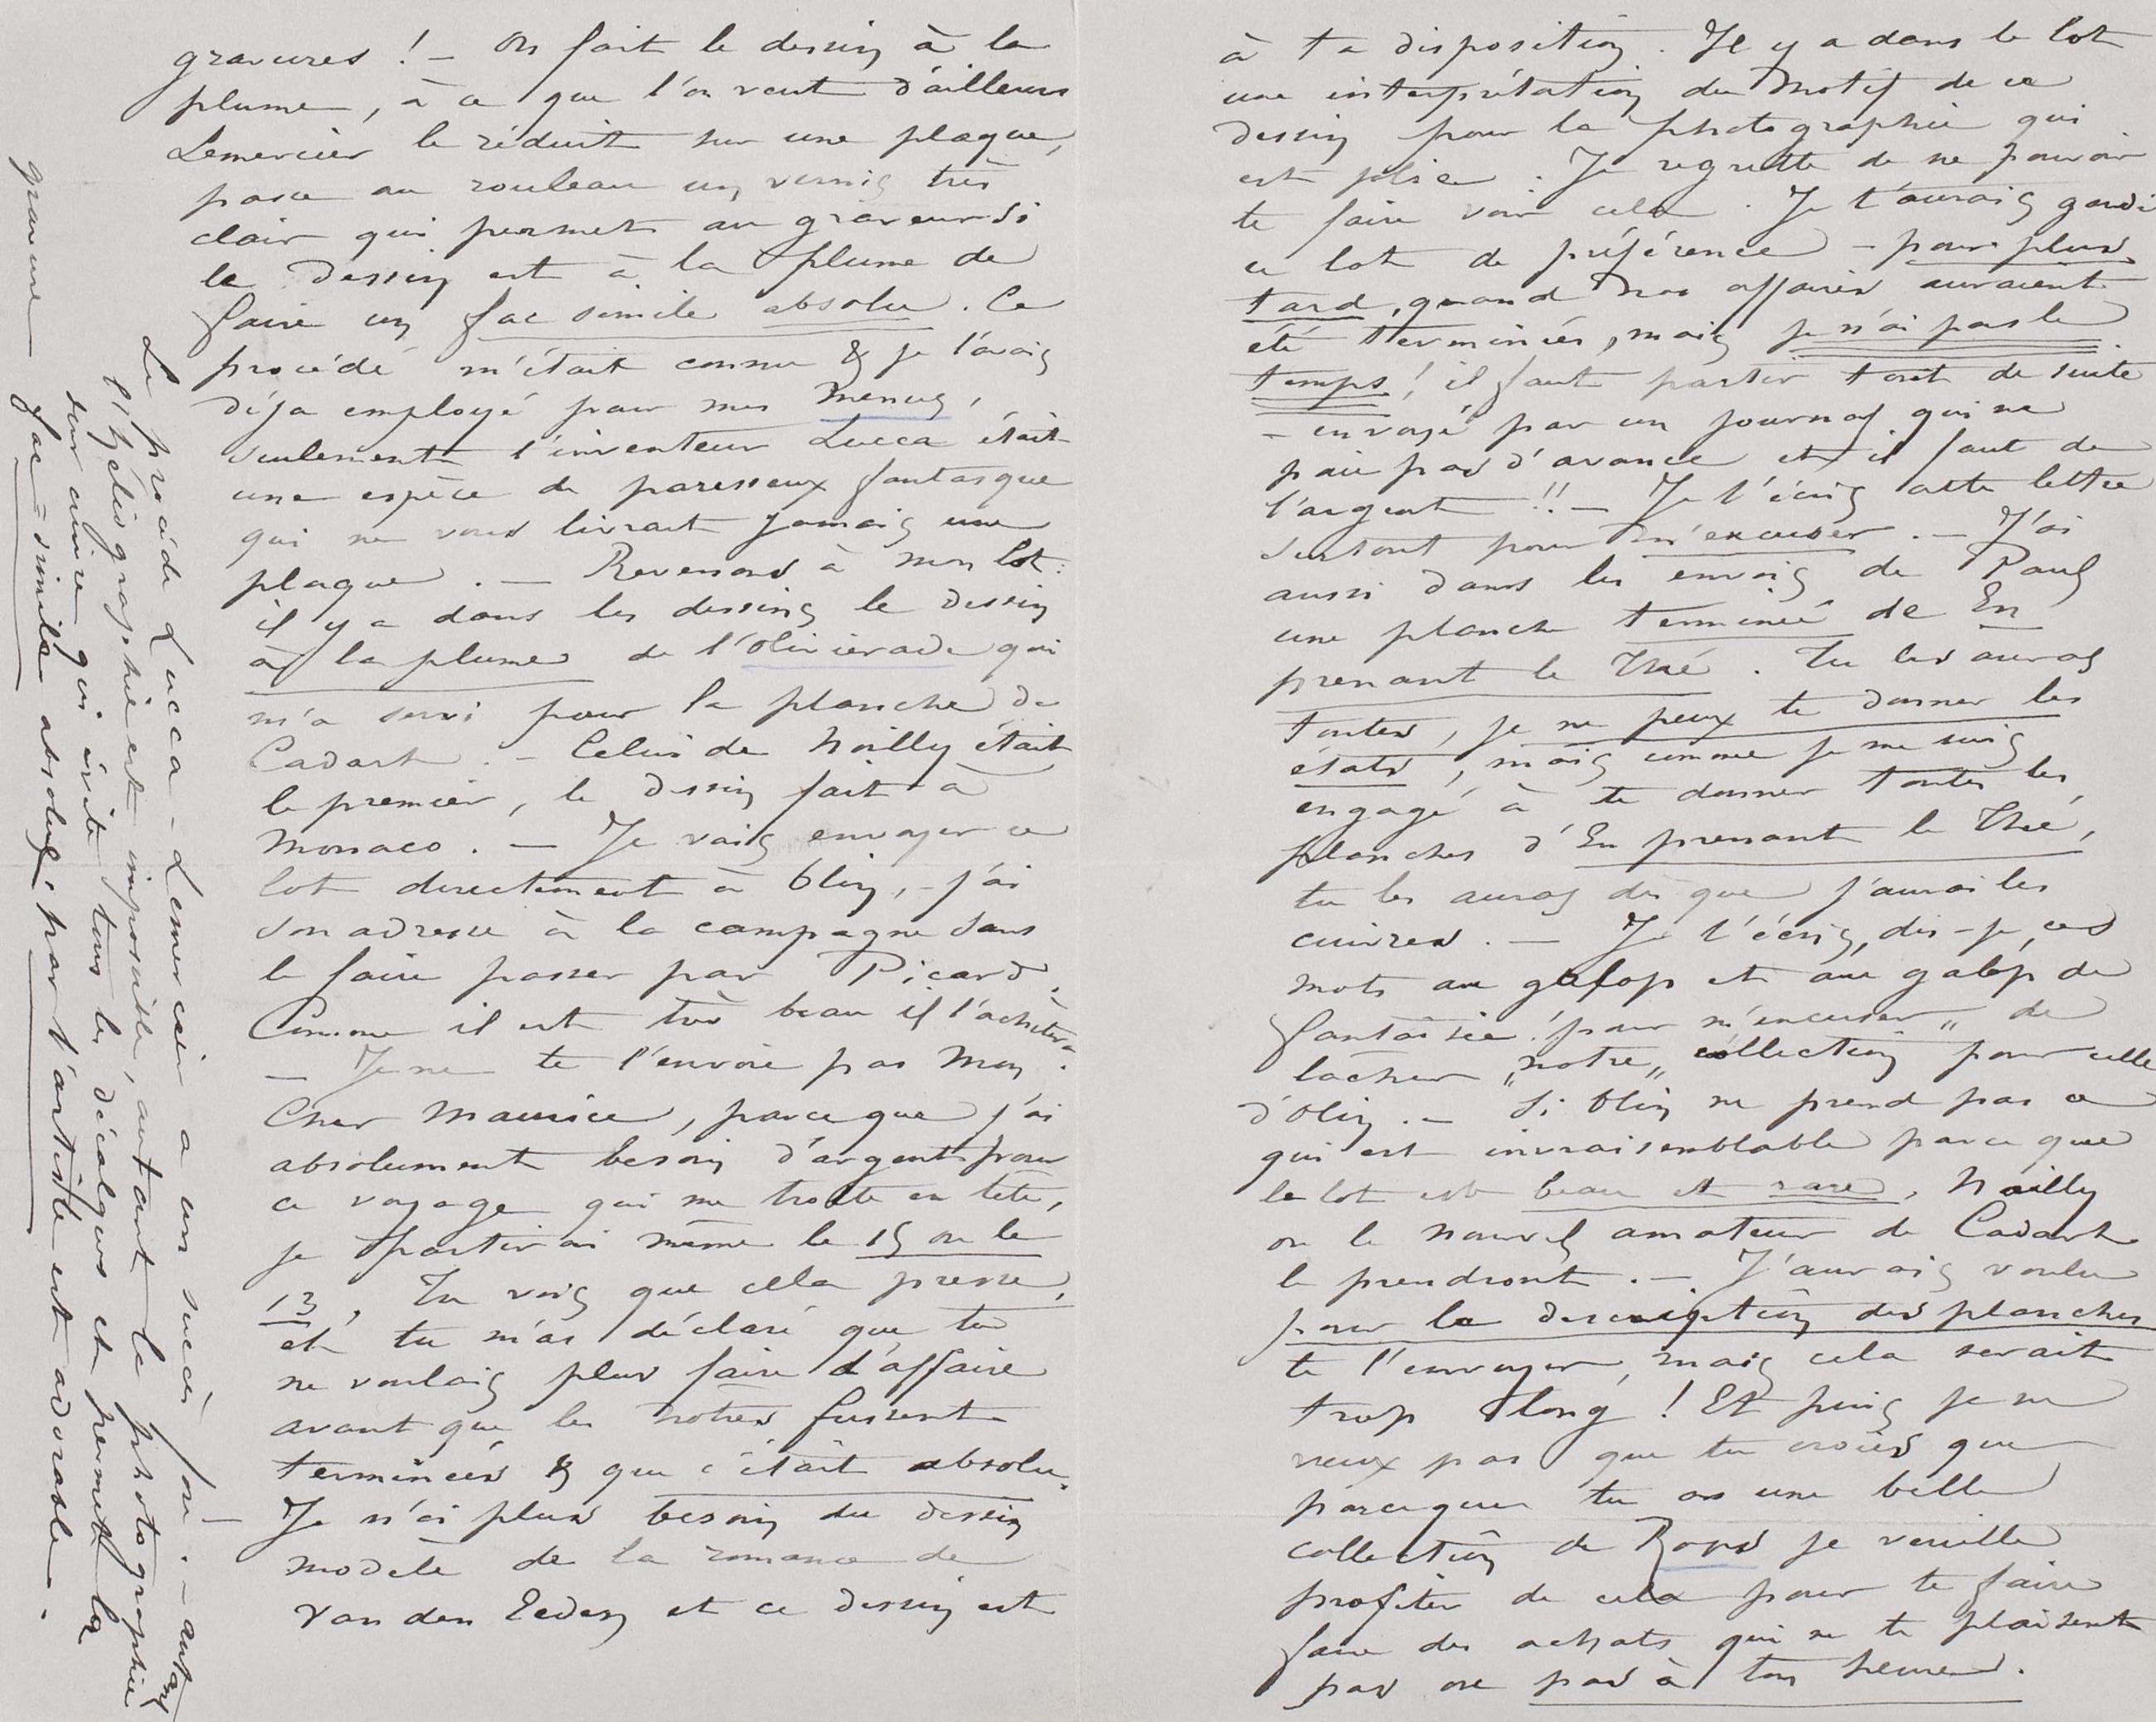 gravures ! – On fait le dessin à la
plume, à ce que l'on veut d'ailleurs
Lemercier le réduit sur une plaque,
passe au rouleau un vernis très
clair qui permet au graveur si
le dessin est à la plume de
faire un fac simile absolu. Ce
procédé m'était connu & je l'avais
déja employé pour mes Menus,
seulement l'inventeur Lucca était
une espèce de paresseux fantasque
qui ne vous livrait jamais une
plaque. – Revenons à mon lot :
il y a dans les dessins le dessin
à la plume de l'olivierade qui
m'a servi pour la planche de
Cadart. – Celui de Noilly était
le premier, le dessin fait à
Monaco. – Je vais envoyer ce
lot directement à Olin, – j'ai
son adresse à la campagne sans
le faire passer par Picard.
Comme il est très beau il l'achètera.
– Je ne te l'envoie pas Mon
Cher Maurice, parce que j'ai
absolument besoin d'argent pour
ce voyage qui me trotte en tête,
je partirai même le 15 ou le
13. Tu vois que cela presse,
et tu m'as déclaré que tu
ne voulais plus faire d'affaire
avant que les notres fussent
terminées & que c'était absolu.
– Je n'ai plus besoin du dessin
modèle de la romance de
Van den Eeden et ce dessin est
Le procédé Lucca – Lemercier a un succès fou. – autant
l'héliographie est impossible, autant la photographie
sur cuivre qui évite tous les décalques et permet la
gravure fac = simile absolue par l'artiste est adorable.
à ta disposition. Il y a dans le lot
une interprétation du Motif de ce
dessin pour la photographie qui
est jolie. Je regrette de ne pouvoir
te faire voir cela. Je t'aurais gardé
ce lot de préférence – pour plus
tard, quand nos affaires auraient
été terminées, mais je n'ai pas le
temps ! il faut partir tout de suite
– envoyé par un journal qui ne
paie pas d'avance et il faut de
l'argent !! – Je t'écris cette lettre
surtout pour m'excuser. – J'ai
aussi dans les envois de Paul
une planche terminée de En
prenant le Thé. Tu les auras
toutes, je ne peux te donner les
états, mais comme je me suis
engagé à te donner toutes les
planches d'En prenant le Thé,
tu les auras dès que j'aurai les
cuivres. – Je t'écris, dis-je, ces
mots au galop et au galop de
fantaisie ! pour m'excuser „ de
lâcher „notre„ collection pour celle
d'Olin. – Si Olin ne prend pas ce
qui est invraisemblable parce que
le lot est beau et rare, Noilly
ou le nouvel amateur de Cadart
le prendront. – J'aurais voulu
pour la description des planches
te l'envoyer, mais cela serait
trop long ! Et puis je ne
veux pas que tu croies que
parceque tu as une belle
collection de Rops je veuille
profiter de cela pour te faire
faire des achats qui ne te plaisent
pas ou pas à ton heure.